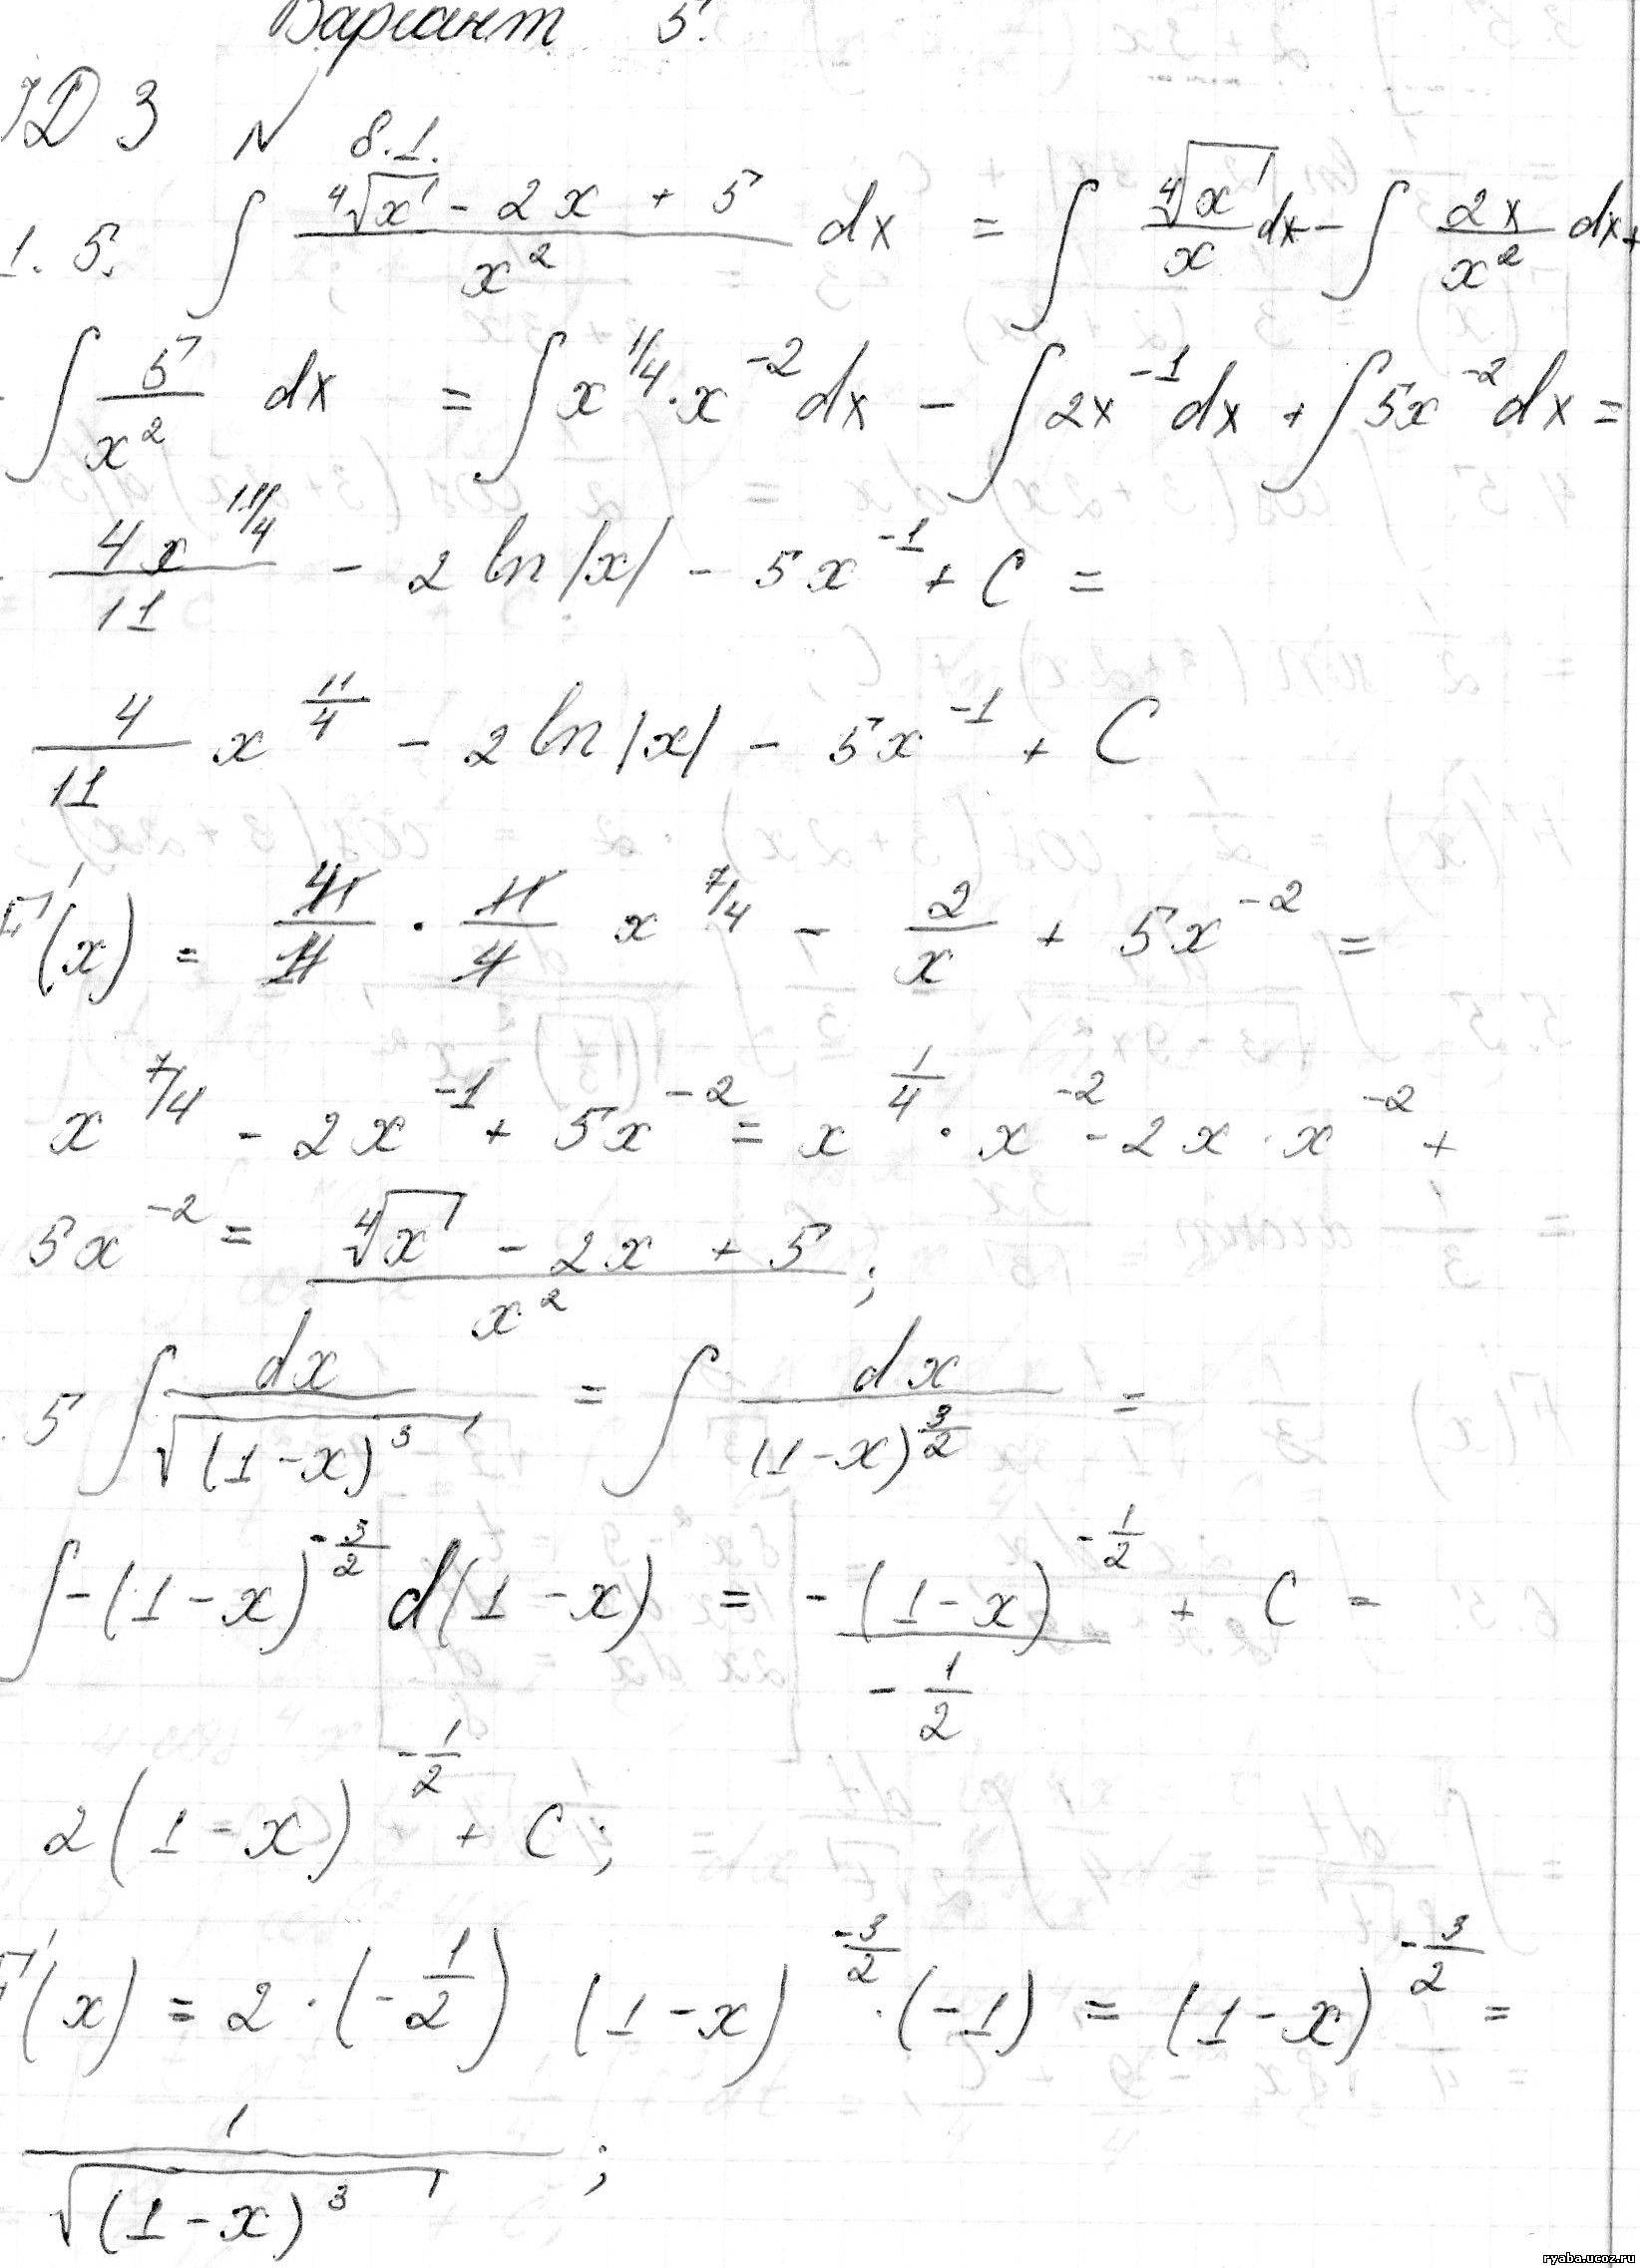 Вариант 5.
ИДЗ № 8.1.
1.5. ∫ (⁴√x - 2x + 5)/x² dx = ∫ ⁴√x/x dx - ∫ 2x/x² dx +
∫ 5/x² dx = ∫ x^(1/4) · x^(-2) dx - ∫ 2x^(-1) dx + ∫ 5x^(-2) dx =
4x^(11/4)/11 - 2 ln|x| - 5x^(-1) + C =
4/11 x^(11/4) - 2 ln|x| - 5x^(-1) + C
F'(x) = 4/11 · 11/4 x^(7/4) - 2/x + 5x^(-2) =
x^(7/4) - 2x^(-1) + 5x^(-2) = x^(1/4) · x^(-2) - 2x · x^(-2) +
5x^(-2) = (⁴√x - 2x + 5)/x²;
.5 ∫ dx/√((1-x)³) = ∫ dx/(1-x)^(3/2) =
∫ -(1-x)^(-3/2) d(1-x) = -(1-x)^(-1/2)/(-1/2) + C =
2(1-x)^(-1/2) + C;
F'(x) = 2 · (-1/2) (1-x)^(-3/2) · (-1) = (1-x)^(-3/2) =
1/√((1-x)³);
ryaba.ucoz.ru